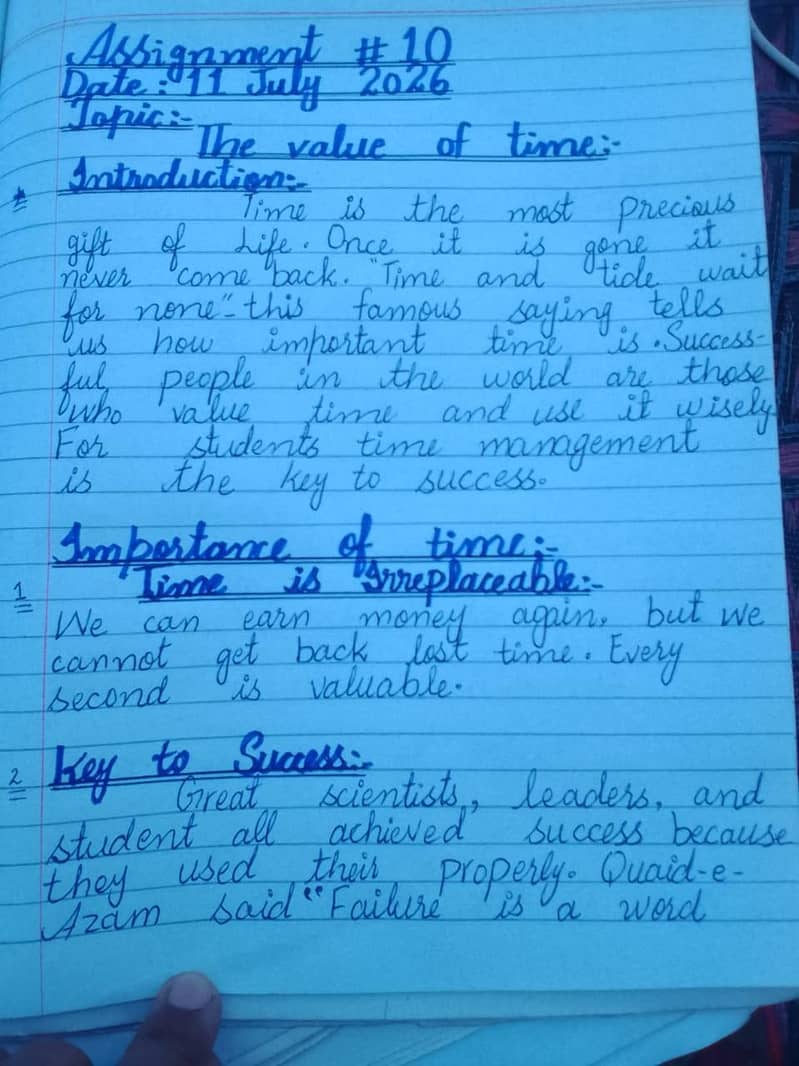 Assignment # 10
Date : 11 July 2026
Topic:-
The value of time:-
Introduction:-
Time is the most precious
gift of Life. Once it is gone it
never come back. "Time and tide wait
for none"- this famous saying tells
us how important time is. Success-
ful people in the world are those
who value time and use it wisely
For students time management
is the key to success.
Importance of time:-
1 Time is Irreplaceable:-
We can earn money again, but we
cannot get back lost time. Every
second is valuable.
2 Key to Success:-
Great scientists, leaders, and
student all achieved success because
they used their properly. Quaid-e-
Azam said "Failure is a word